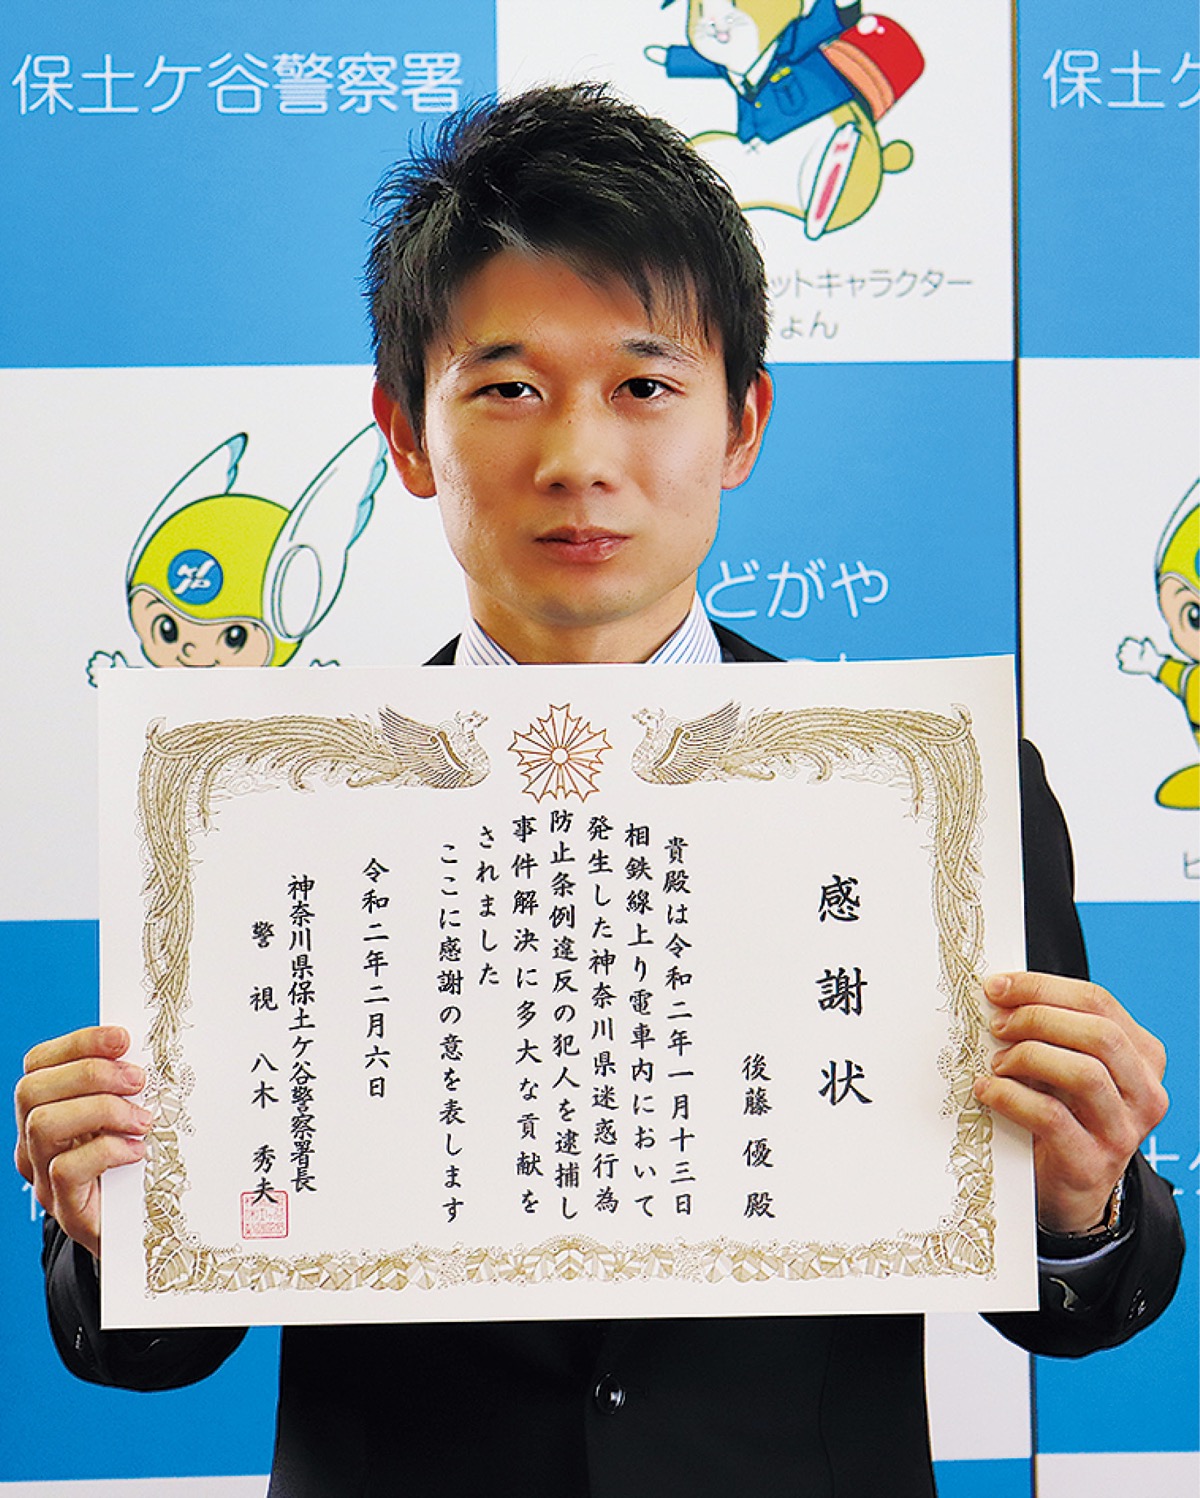 保土ケ谷警察署
保土ケ
ットキャラクター
ぎょん
どがや
感謝状
後藤優殿
貴殿は令和二年一月十三日
相鉄線上り電車内において
発生した神奈川県迷惑行為
防止条例違反の犯人を逮捕し
事件解決に多大な貢献を
されました
ここに感謝の意を表します
令和二年二月六日
神奈川県保土ケ谷警察署長
警視 八木秀夫